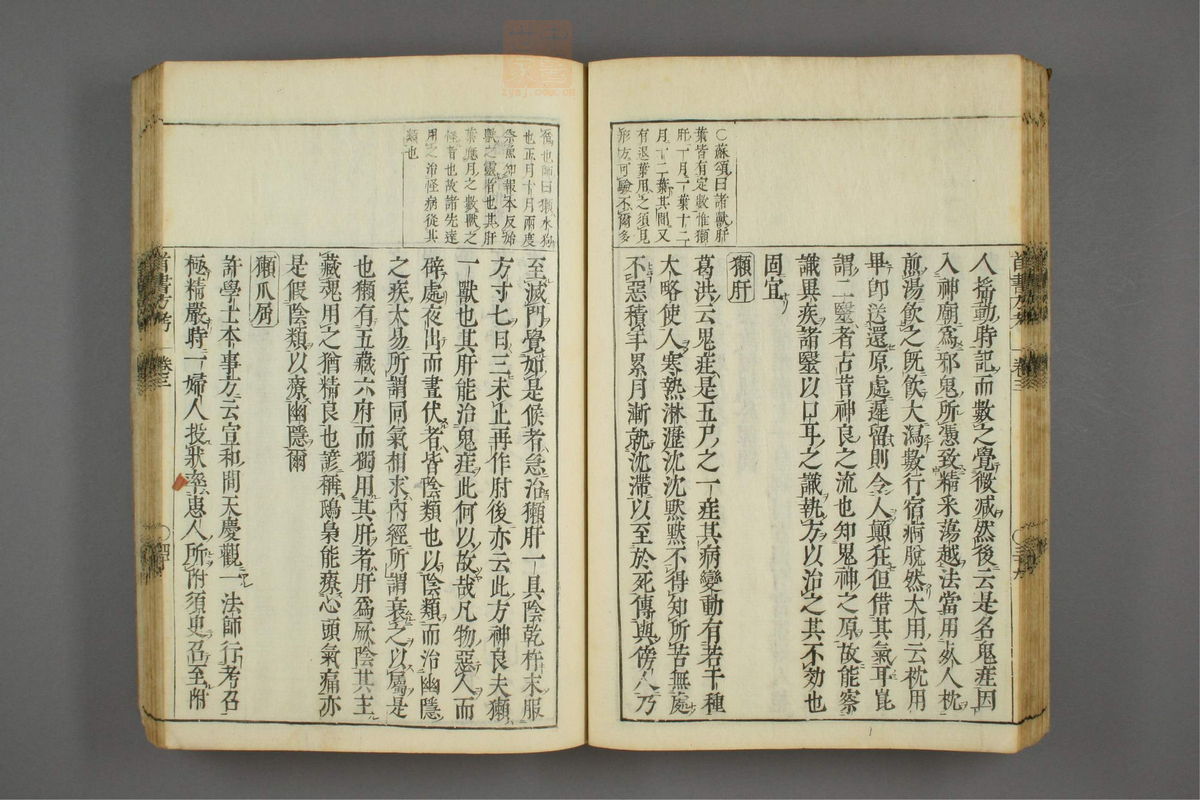 ○蘇頌曰諸獸肝
葉皆有定數惟獺
肝十月一葉十二
月十二葉其間又
有退葉用之須見
形方可驗不爾多
人搐動時記而數之覺微減然後云是名鬼疰因
入神廟爲邪鬼所憑致精采蕩越法當用死人枕
煎湯飲之旣飲大瀉數行宿痾脫然大用云枕用
畢卽送還原處遲留則令人顚狂但借其氣耳崑
謂二醫者古昔神良之流也知鬼神之原故能察
識異疾諸醫以口耳之識執方以治之其不効也
固宜
獺肝
葛洪云鬼疰是五尸之一疰其病變動有若干種
大略使人寒熱淋瀝沈沈默默不得知所苦無處
不惡積年累月漸就沈滯以至於死傳與傍人乃
僞也
曰獺水狗
也正月十月兩度
祭魚知報本反始
獸之靈者也其肝
葉應月之數獸之
怪者也故諸先達
用之治怪病從其
類也
至滅門覺如是候者急治獺肝一具陰乾杵末服
方寸七日三未止再作肘後亦云此方神良夫獺
一獸也其肝能治鬼疰此何以故哉凡物惡人而
僻處夜出而晝伏者皆陰類也以陰類而治幽隱
之疾大易所謂同氣相求內經所謂衰之以屬是
也獺有五藏六府而獨用其肝者肝爲厥陰其主
藏魂用之猶精良也諺稱鴟梟能療心頭氣痛亦
是假陰類以療幽隱爾
獺爪屑
許學士本事方云宣和間天慶觀一法師行考召
極精嚴時一婦人投狀
患人所附須臾召至附
首書方考
卷三